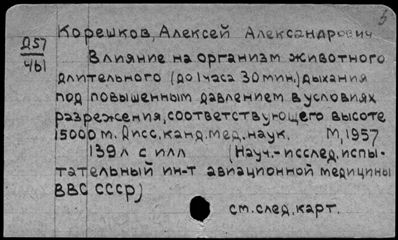 5
Корешков, Алексей Александрович
Д57
461
Влияние на организм животного
длительного (до 1 часа 30 мин.) дыхания
под повышенным давлением в условиях
разрежения, соответствующего высоте
15000 м. Дисс. канд. мед. наук. М, 1957
139 л с илл (Науч.-исслед. испы-
тательный ин-т авиационной медицины
ВВС СССР)
см. след. карт.